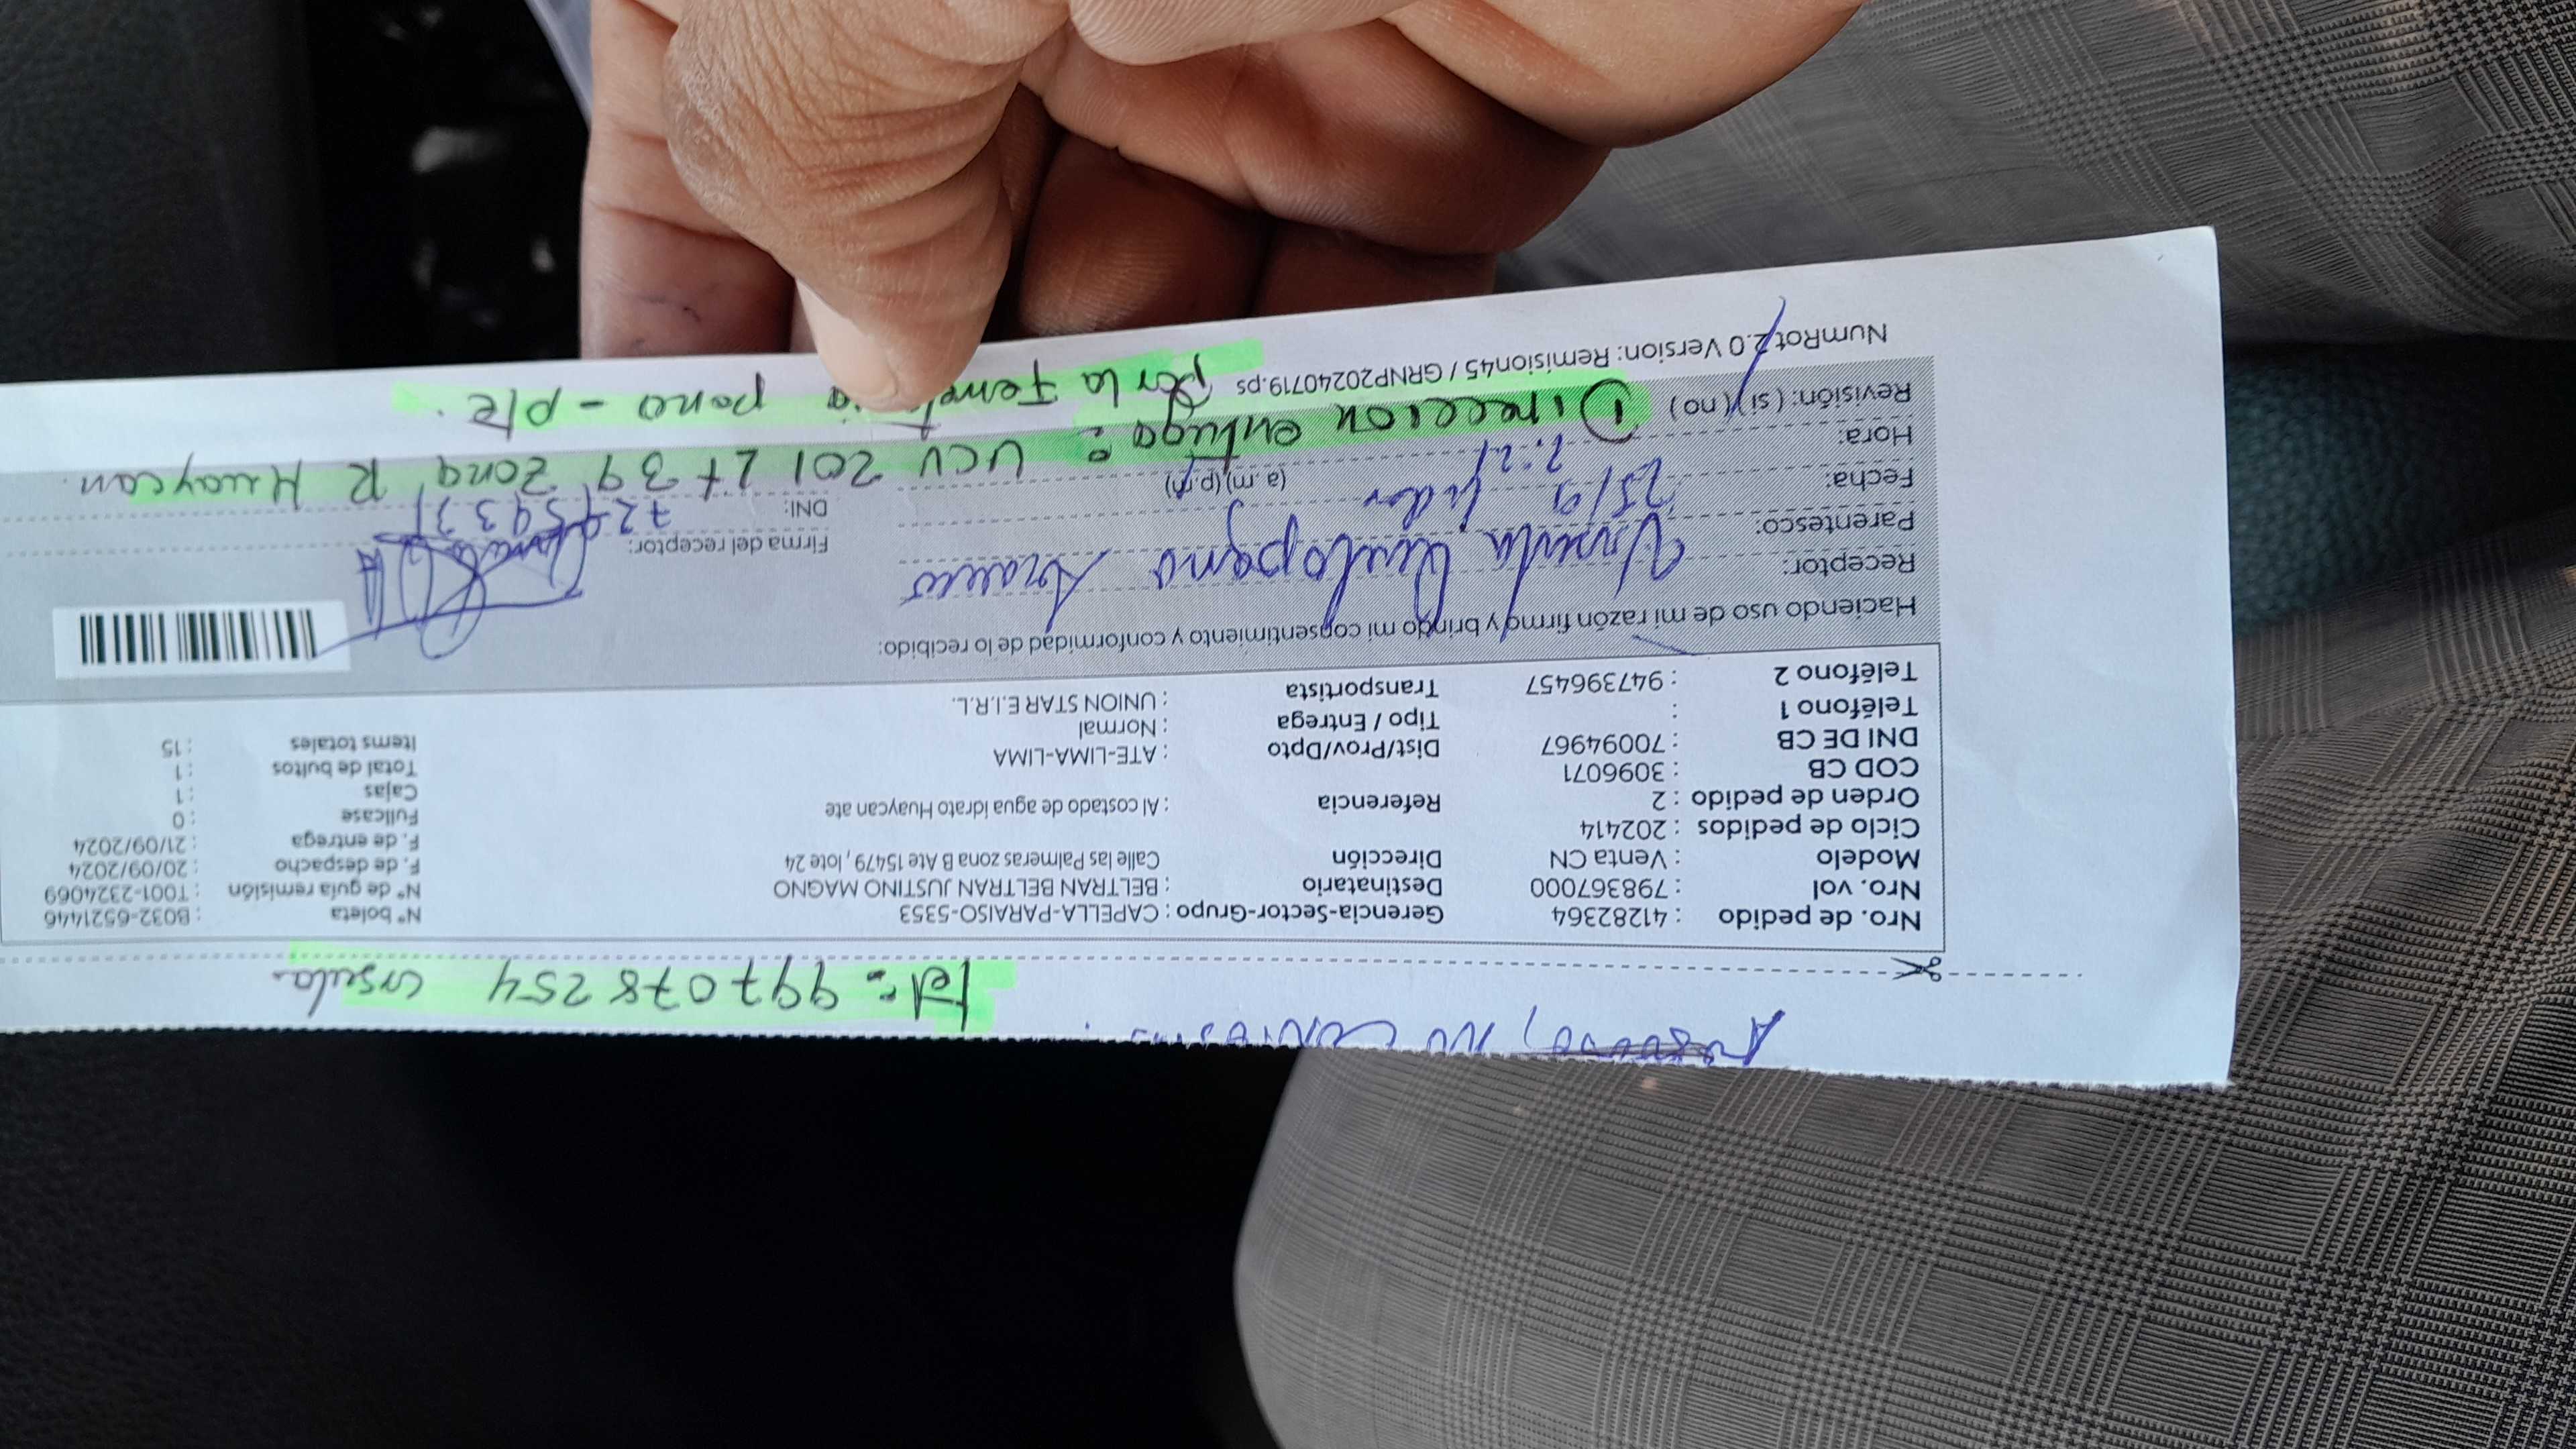 tel: 997078254 Ursula.
Nro. de pedido : 41282364
Nro. vol : 798367000
Modelo : Venta CN
Ciclo de pedidos : 202414
Orden de pedido : 2
COD CB : 3096071
DNI DE CB : 70094967
Teléfono 1 :
Teléfono 2 : 947396457
Gerencia-Sector-Grupo : CAPELLA-PARAISO-5353
Destinatario : BELTRAN BELTRAN JUSTINO MAGNO
Dirección Calle las Palmeras zona B Ate 15479 , lote 24
Referencia : Al costado de agua Idrato Huaycan ate
Dist/Prov/Dpto : ATE-LIMA-LIMA
Tipo / Entrega : Normal
Transportista : UNION STAR E.I.R.L.
N° boleta : B032-6521446
N° de guía remisión : T001-2324069
F. de despacho : 20/09/2024
F. de entrega : 21/09/2024
Fullcase : 0
Cajas : 1
Total de bultos : 1
Items totales : 15
Haciendo uso de mi razón firmo y brindo mi consentimiento y conformidad de lo recibido:
Receptor: Ursula
Parentesco:
Fecha: 25/9
Hora: (a.m)(p.m)
Revisión: (si)(no)
Firma del receptor:
DNI:
Direccion entrega: UCV 201 Lt 39 zona R Huaycan.
por la
NumRot 2.0 Version: Remision45 / GRNP20240719.ps